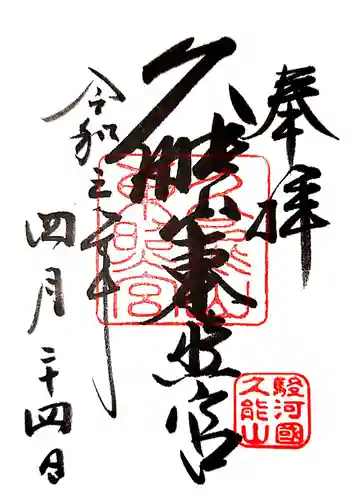 奉拝
久能山東照宮
令和三年
四月二十四日
久能山東照宮
駿河國
久能山